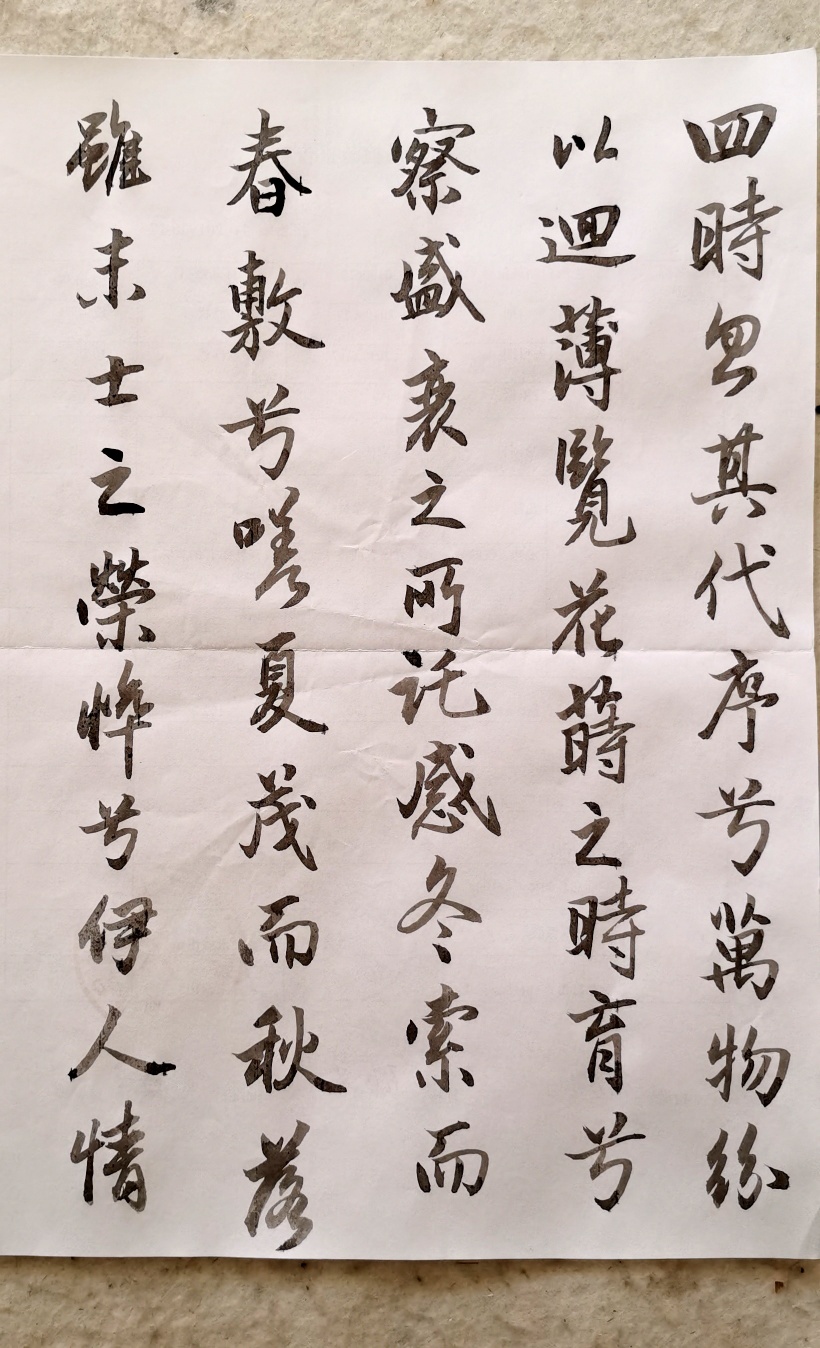 四時忽其代序兮萬物紛
以迴薄覽花蒔之時育兮
察盛衰之所託感冬索而
春敷兮嗟夏茂而秋落
雖末士之榮悴兮伊人情